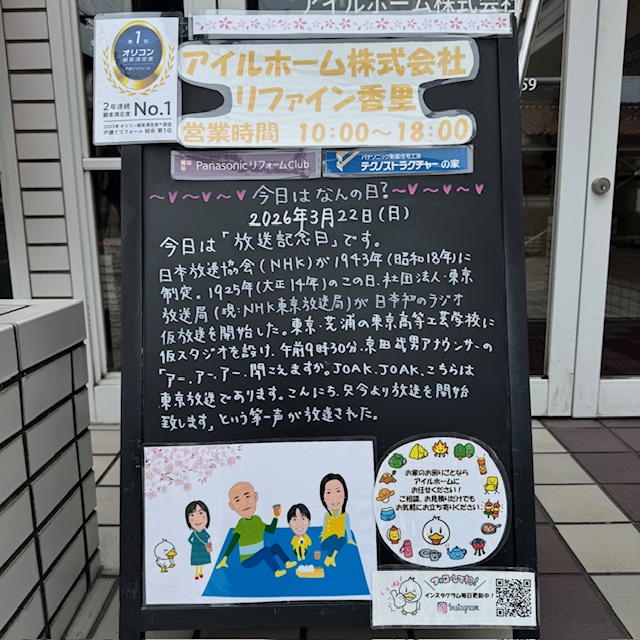 アイルホーム株式会社
第1位
オリコン
顧客満足度
戸建てリフォーム
2年連続
顧客満足度 No.1
2023年 オリコン顧客満足度®調査
戸建てリフォーム 総合 第1位
アイルホーム株式会社
リファイン香里
営業時間 10:00〜18:00
59
Panasonic リフォームClub
パナソニック耐震住宅工法
テクノストラクチャーの家
〜♥〜♥〜♥ 今日はなんの日? 〜♥〜♥〜♥
2026年3月22日(日)
今日は「放送記念日」です。
日本放送協会(NHK)が1943年(昭和18年)に
制定。1925年(大正14年)のこの日、社団法人・東京
放送局(現・NHK東京放送局)が日本初のラジオ
仮放送を開始した。東京・芝浦の東京高等工芸学校に
仮スタジオを設け、午前9時30分、京田武男アナウンサーの
「アー、アー、アー、聞こえますか。JOAK、JOAK、こちらは
東京放送局であります。こんにち、只今より放送を開始
致します」という第一声が放送された。
お家のお困りごとなら
アイルホームに
お任せください!
ご相談、お見積りだけでも
お気軽にお立ち寄りください!
フォローしてね!
インスタグラム毎日更新中!
Instagram